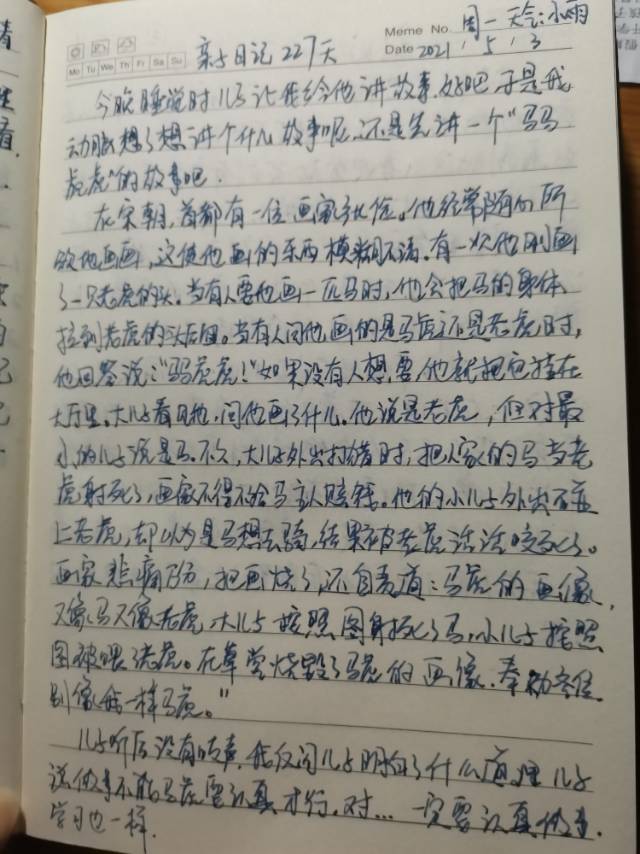 周一 天气:小雨
亲子日记227天
Memo No.
Mo Tu We Th Fr Sa Su
Date 2021 / 5 / 3
今晚睡觉时儿子让我给他讲故事,好吧于是我
动脑想了想讲个什么故事呢,还是先讲一个"马马
虎虎"的故事吧.
在宋朝,首都有一位画家。他经常随心所
欲地画画,这使他画的东西模糊不清。有一次他刚画
了一只老虎的头。当有人要他画一匹马时,他会把马的身体
拉到老虎的头后面。当有人问他,画的是马虎还是老虎时,
他回答说:"马马虎虎!"如果没有人想要,他就把它挂在
大厅里。大儿子看见他,问他画了什么。他说是老虎,但对最
小的儿子说是马。不久,大儿子外出打猎时,把人家的马当老
虎射死了,画家不得不给马主人赔钱。他的小儿子外出碰
上老虎,却以为是马想去骑,结果被老虎活活咬死了。
画家悲痛万分,把画烧了,还自责道:马虎的画像,
又像马又像老虎,大儿子按照图射死了马,小儿子按照
图被喂老虎。在草堂烧毁了马虎的画像.奉劝各位
别像我一样马虎。"
儿子听后没有吱声,我反问儿子明白了什么道理 儿子
说做事不能马虎要认真才行.对...一定要认真做事.
学习也一样.